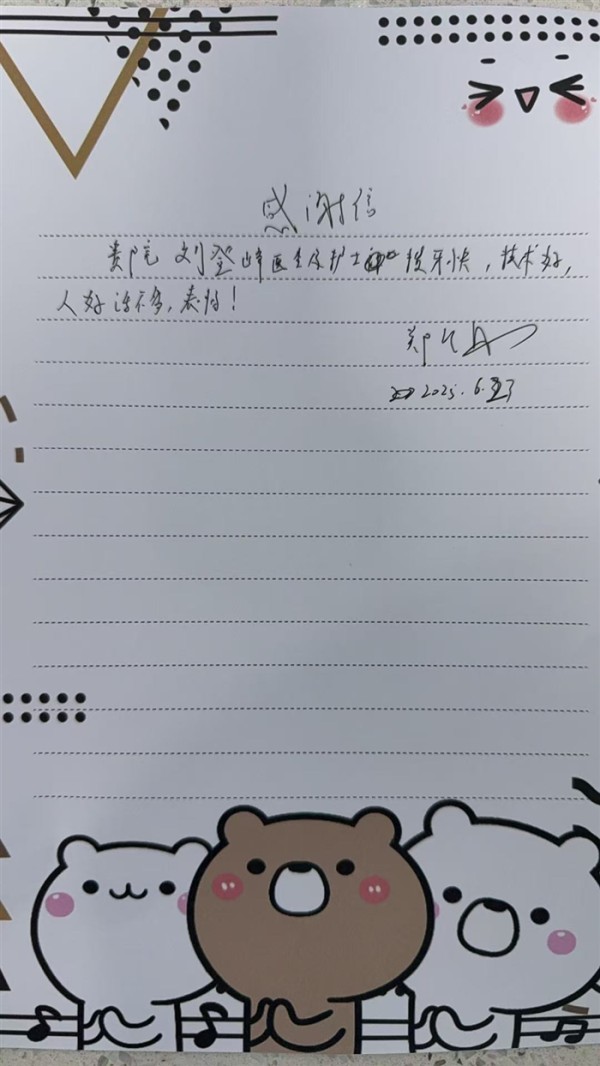 感谢信
贵院刘登峰医生及护士拔牙快，技术好，
人好话不多，表扬！
郑
2025.6.23